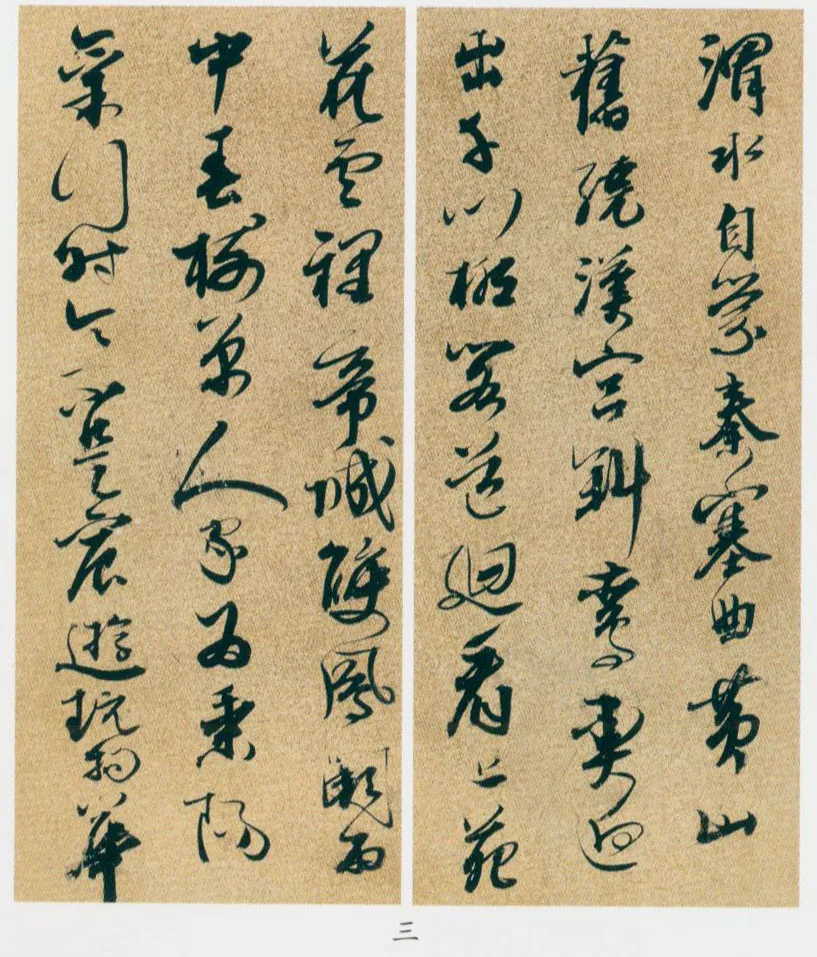 渭水自縈秦塞曲黃山
舊繞漢宮斜鑾輿迥
出千門柳閣道廻看上苑
花雲裡帝城雙鳳闕雨
中春樹萬人家為乘陽
氣行時令不是宸遊玩物華
三